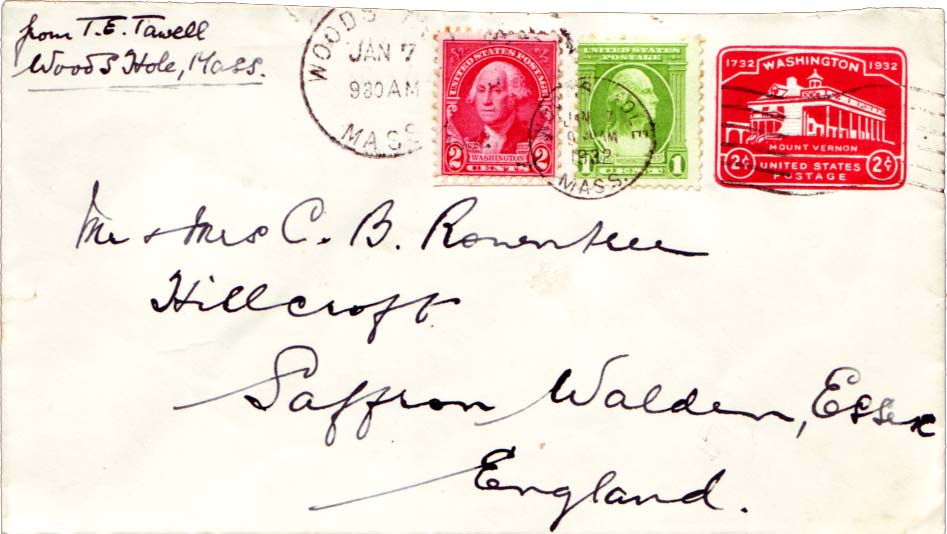 from T.E. Tawell
Woods Hole, Mass.
WOODS
JAN 7
930AM
MASS
UNITED STATES POSTAGE
2 WASHINGTON 2
CENTS
UNITED STATES
POSTAGE
1 WASHINGTON 1
HOLE
JAN 7
AM
1932
MASS.
1732 WASHINGTON 1932
MOUNT VERNON
2¢ UNITED STATES 2¢
POSTAGE
Mr & Mrs C. B. Rowntree
Hillcroft
Saffron Walden, Essex
England.